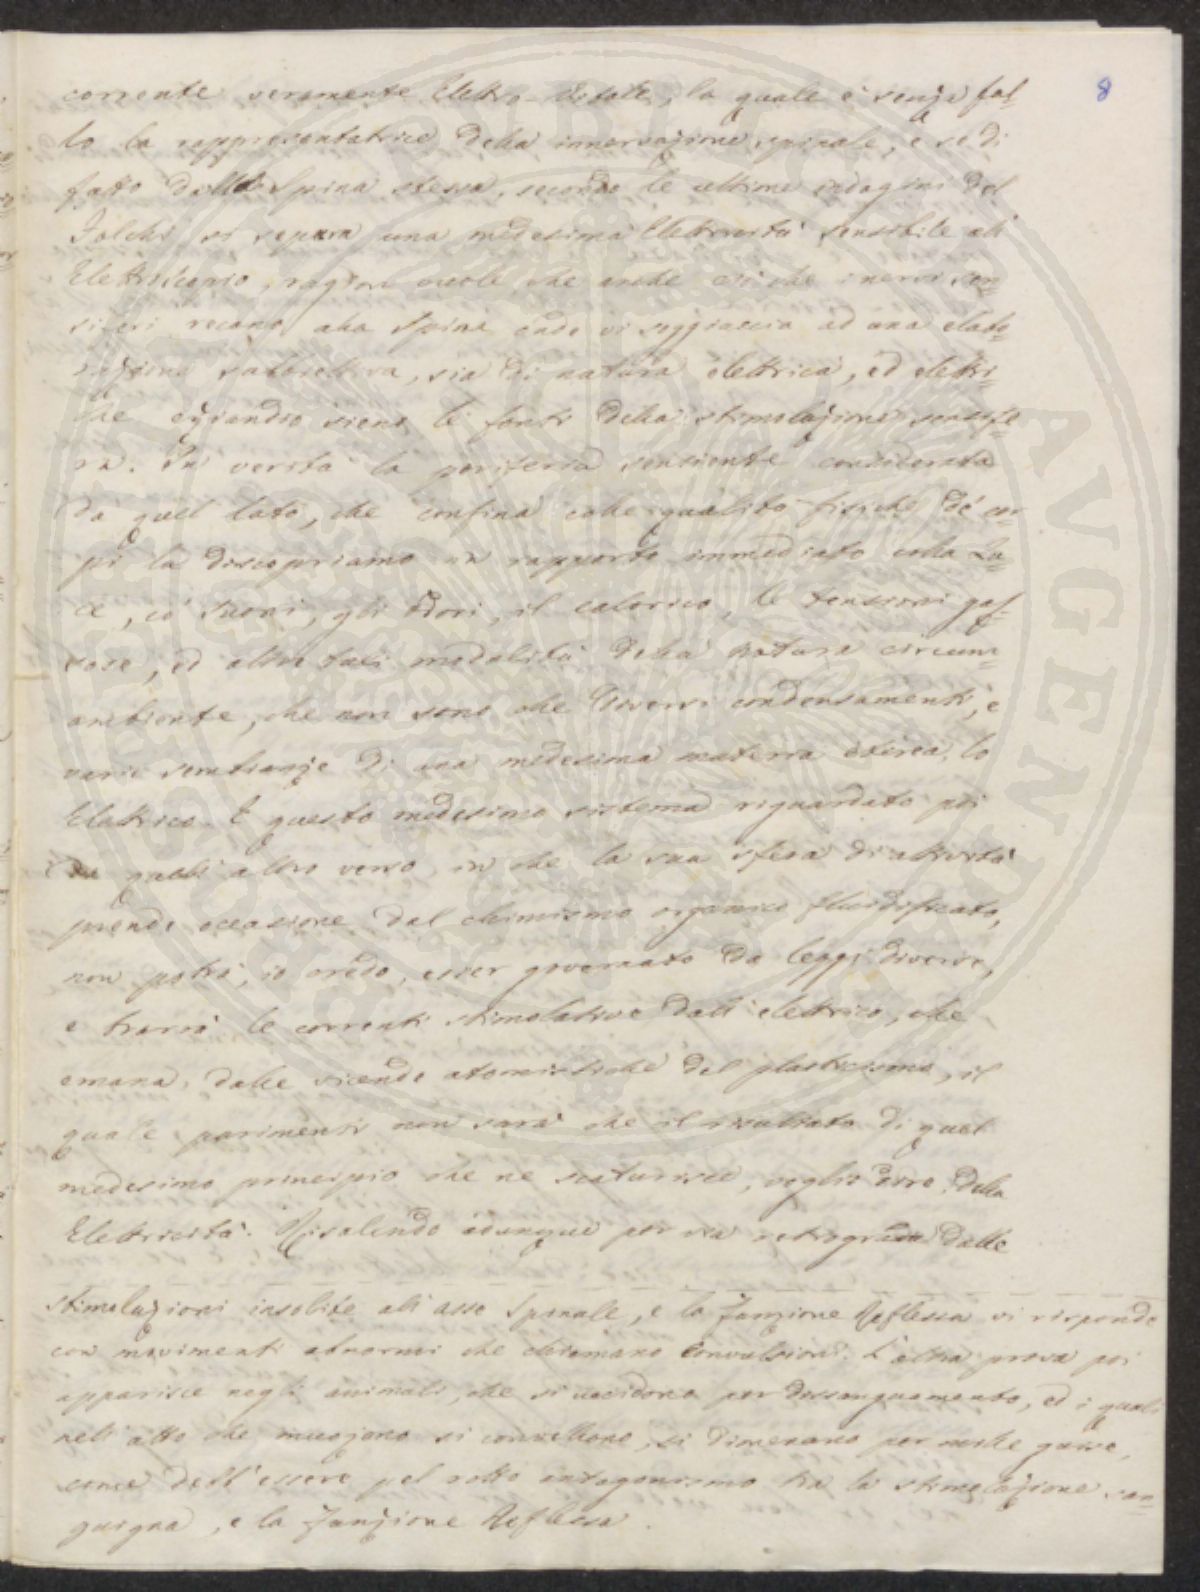 8
corrente veramente Elettro-Vitale, la quale è senza fal-
lo la rappresentatrice della innervazione spinale, e se di
fatto dalla Spina stessa, secondo le ultime indagini del
si separa una medesima Elettricità sensibile all'
Elettroscopio, ragion vuole che anche ciò che i nervi sen-
siferi recano alla Spina onde vi soggiaccia ad una elabo-
razione, sia di natura elettrica, ed elettri-
che eziandio sieno le fonti della stimolazione sensife-
ra. In verità la periferia senziente considerata
da quel lato, che confina colle qualità fisiche de' cor-
pi la discopriamo in rapporto immediato colla Lu-
ce, co' suoni, gli odori, il calorico, le tensioni gas-
sose, ed altre tali modalità della Natura circum-
ambiente, che non sono che diversi condensamenti, e
varie sembianze di una medesima materia eterea, lo
Elettrico. E questo medesimo sistema riguardato poi
da quell'altro verso, in che la sua sfera di attività
prende occasione dal chimismo organico fluidificato,
non potrà, io credo, esser governato da leggi diverse,
e trarrà le correnti stimolative dall'elettrico, che
emana dalle vicende atomistiche del plasticismo, il
quale parimenti non sarà che il risultato di quel
medesimo principio che ne scaturisce, voglio dire della
Elettricità. Risalendo adunque per via retrograda dalle
stimolazioni insolite all'asse Spinale, e la Funzione Reflessa vi risponde
con movimenti abnormi che chiamano Convulsioni. L'altra prova poi
apparisce negli animali, che si uccidono per dissanguamento, ed i quali
nell'atto che muojono si convellono, si dimenano per molte guise,
come dell'essere pel rotto antagonismo tra la stimolazione san-
guigna, e la Funzione Reflessa.